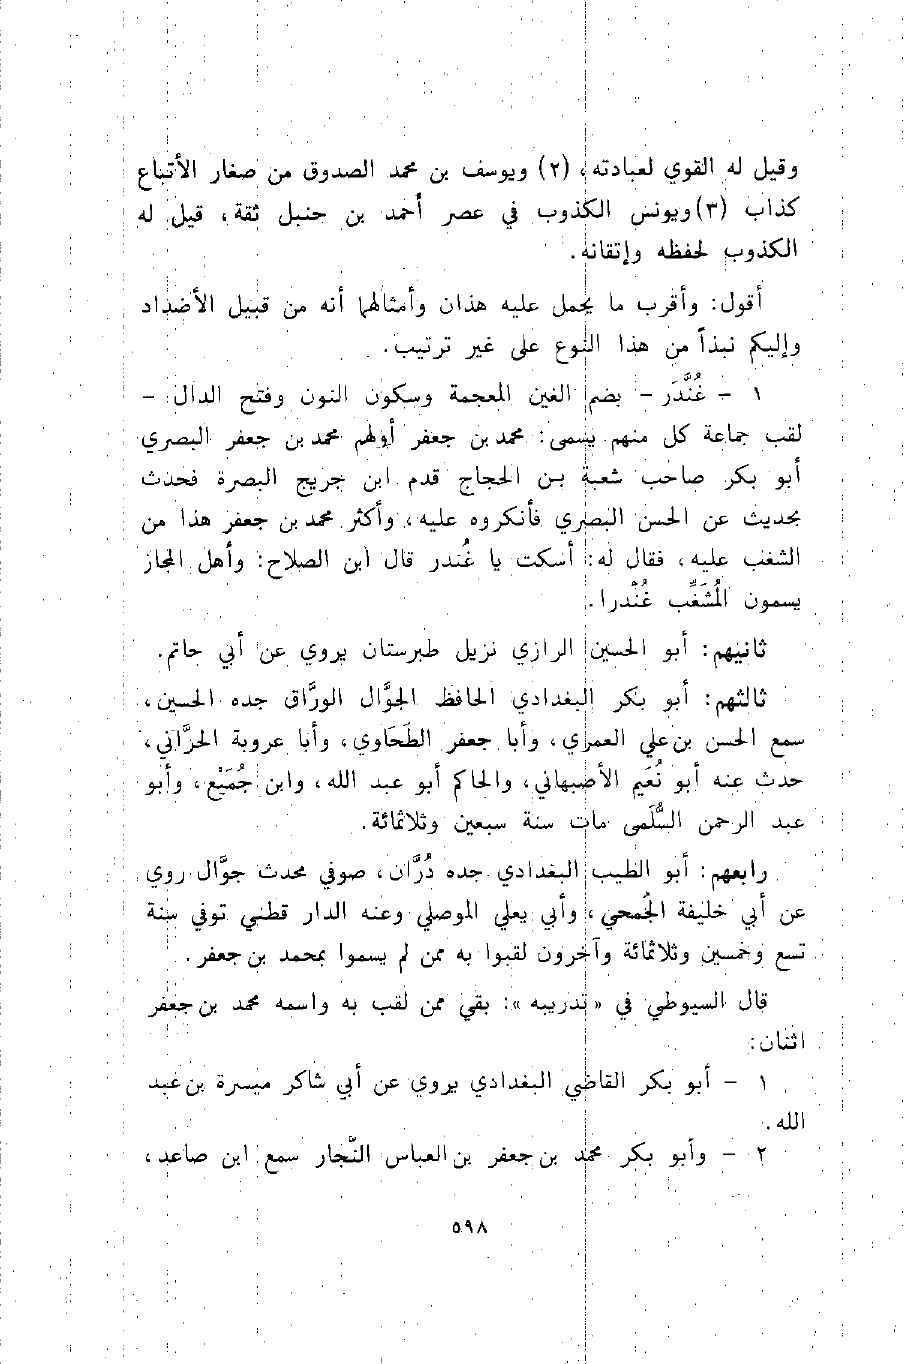 وقيل له القوي لعبادته، (٢) ويوسف بن محمد الصدوق من صغار الأتباع
كذاب (٣) ويونس الكذوب في عصر أحمد بن حنبل ثقة، قيل له
الكذوب لحفظه وإتقانه.
أقول: وأقرب ما يحمل عليه هذان وأمثالهما أنه من قبيل الأضداد
وإليكم نبذاً من هذا النوع على غير ترتيب.
١ - غُنْدَر - بضم الغين المعجمة وسكون النون وفتح الدال -
لقب جماعة كل منهم يسمى: محمد بن جعفر أولهم محمد بن جعفر البصري
أبو بكر صاحب شعبة بن الحجاج قدم ابن جريج البصرة فحدث
بحديث عن الحسن البصري فأنكروه عليه، وأكثر محمد بن جعفر هذا من
الشغب عليه، فقال له: أسكت يا غُندر قال ابن الصلاح: وأهل المجاز
يسمون المُشَغِّب غُنْدرا.
ثانيهم: أبو الحسين الرازي نزيل طبرستان يروي عن أبي حاتم.
ثالثهم: أبو بكر البغدادي الحافظ الجوَّال الورَّاق جده الحسين،
سمع الحسن بن علي العمري، وأبا جعفر الطَحَاوي، وأبا عروبة الحرَّاني،
حدث عنه أبو نُعَيم الأصبهاني، والحاكم أبو عبد الله، وابن جُمَيْع، وأبو
عبد الرحمن السُّلَمى مات سنة سبعين وثلاثمائة.
رابعهم: أبو الطيب البغدادي جده دُرَّان، صوفي محدث جوَّال روي
عن أبي خليفة الجُمحي، وأبي يعلي الموصلي وعنه الدار قطني توفي سنة
تسع وخمسين وثلاثمائة وآخرون لقبوا به ممن لم يسموا بمحمد بن جعفر.
قال السيوطي في «تدريبه»: بقي ممن لقب به واسمه محمد بن جعفر
اثنان:
١ - أبو بكر القاضي البغدادي يروي عن أبي شاكر ميسرة بن عبد
الله.
٢ - وأبو بكر محمد بن جعفر بن العباس النَّجار سمع ابن صاعد،
٥٩٨